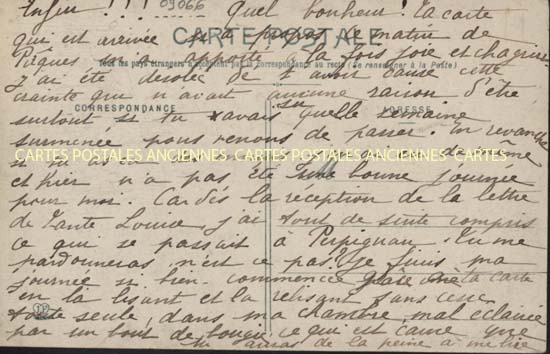 Enfin !!! 09066 Quel bonheur! Ta carte
qui est arrivée si à propos le matin de
CARTE POSTALE
Pâques m'a apporté à la fois joie et chagrin.
Tous les pays étrangers n'acceptent pas la correspondance au recto (Se renseigner à la Poste)
J'ai été désolée de t'avoir causé cette
crainte qui n'avait aucune raison d'être
CORRESPONDANCE
ADRESSE
surtout si tu avais su quelle semaine
surmenée nous venons de passer. En revanche
CARTES POSTALES ANCIENNES CARTES POSTALES ANCIENNES CARTES
et hier n'a pas été une bonne journée
pour moi. Car dès la reception de la lettre
de Tante Louise j'ai tout de suite compris
ce qui se passait à Perpignan. Tu me
pardonneras, n'est ce pas? Je finis ma
journée si bien commencée grâce à ta carte
en la lisant et la relisant sans cesse
toute seule, dans ma chambre, mal éclairée
par un bout de bougie ce qui est cause que
tu auras de la peine à me lire